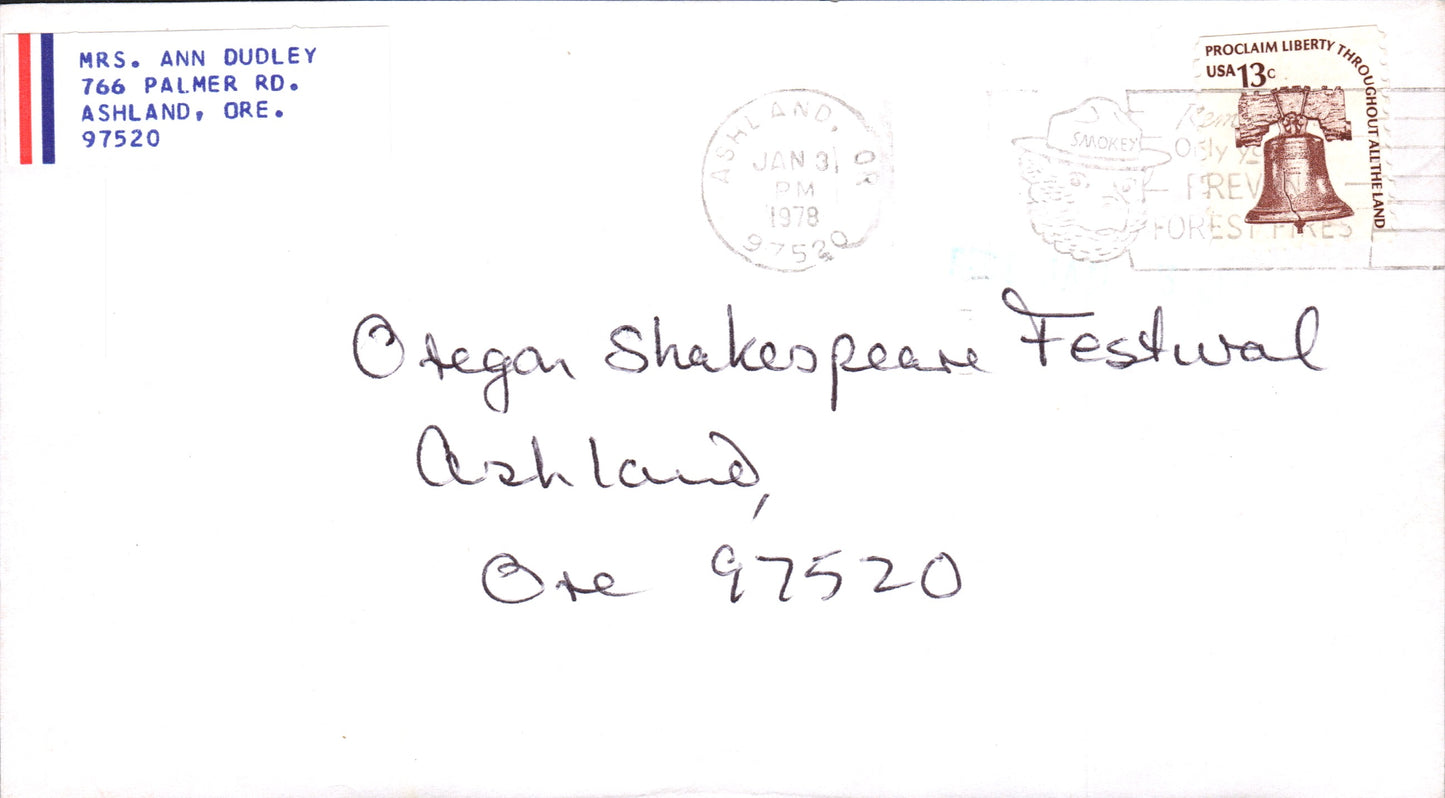 MRS. ANN DUDLEY
766 PALMER RD.
ASHLAND, ORE.
97520
ASHLAND, OR
JAN 3
PM
1978
97520
SMOKEY
Only
PREVEN
FOREST FIRES
PROCLAIM LIBERTY THROUGHOUT ALL THE LAND
USA 13c
Oregon Shakespeare Festival
Ashland,
Ore 97520